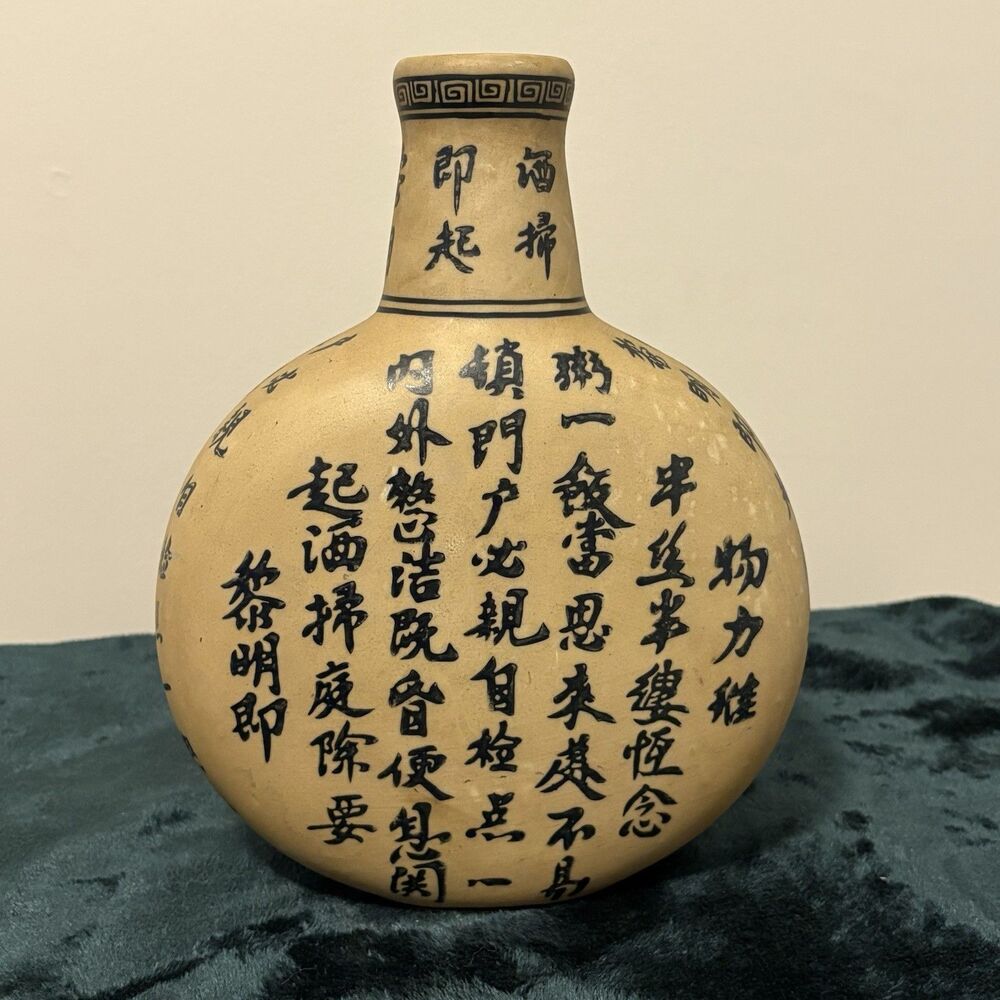 即起
洒掃
黎明即
起洒掃庭除要
内外整洁既昏便息関
鎖門户必親自检点一
粥一飯當思来處不易
半丝半縷恆念
物力维